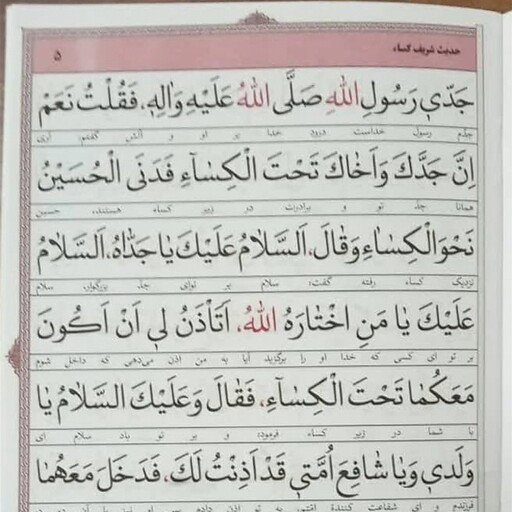 حدیث شریف کساء ۵
جَدّي رَسُولِ اللهِ صَلَّى اللهُ عَلَيْهِ وَالِهِ، فَقُلْتُ نَعَمْ
جدم رسول خداست درود خدا بر او و آلش گفتم: آری
اِنَّ جَدَّكَ وَاَخَاكَ تَحْتَ الْكِسٰاءِ فَدَنَى الْحُسَيْنُ
همانا جد تو و برادرت در زیر کساء هستند، حسین
نَحْوَ الْكِسٰاءِ وَقَالَ، اَلسَّلَامُ عَلَيْكَ يَا جَدّٰاهُ، اَلسَّلَامُ
نزدیک کساء رفته گفت: سلام بر توای جد بزرگوار، سلام
عَلَيْكَ يَا مَنِ اخْتٰارَهُ اللهُ، اَتَأْذَنُ لي اَنْ اَكُونَ
بر تو ای کسی که خدا او را برگزید آیا به من اذن می‌دهی که داخل شوم
مَعَكُمٰا تَحْتَ الْكِسٰاءِ، فَقٰالَ وَعَلَيْكَ السَّلَامُ يٰا
با شما در زیر کساء فرمود: و بر تو باد سلام ای
وَلَدي وَيٰا شٰافِعَ اُمَّتي قَدْ اَذِنْتُ لَكَ، فَدَخَلَ مَعَهُمٰا
فرزندم و ای شفاعت کنندهٔ امتم، به تو اذن دادم پس او نیز با آن دو در